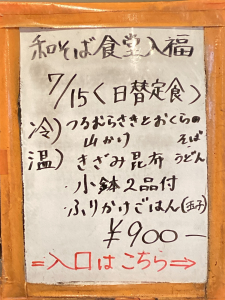 和そば食堂入福
7/15〈日替定食〉
冷)つるむらさきとおくらの
山かけ そば
温)きざみ昆布 うどん
・小鉢2品付
・ふりかけごはん(玉子)
¥900-
=入口はこちら⇒